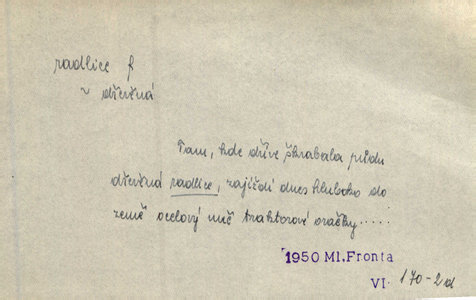 radlice f
~ dřevěná
Tam, kde dříve škrabala půdu
dřevěná radlice, zajíždí dnes hluboko do
země ocelový nůž traktorové oračky.....
1950 Ml.Fronta
VI. 170-2d